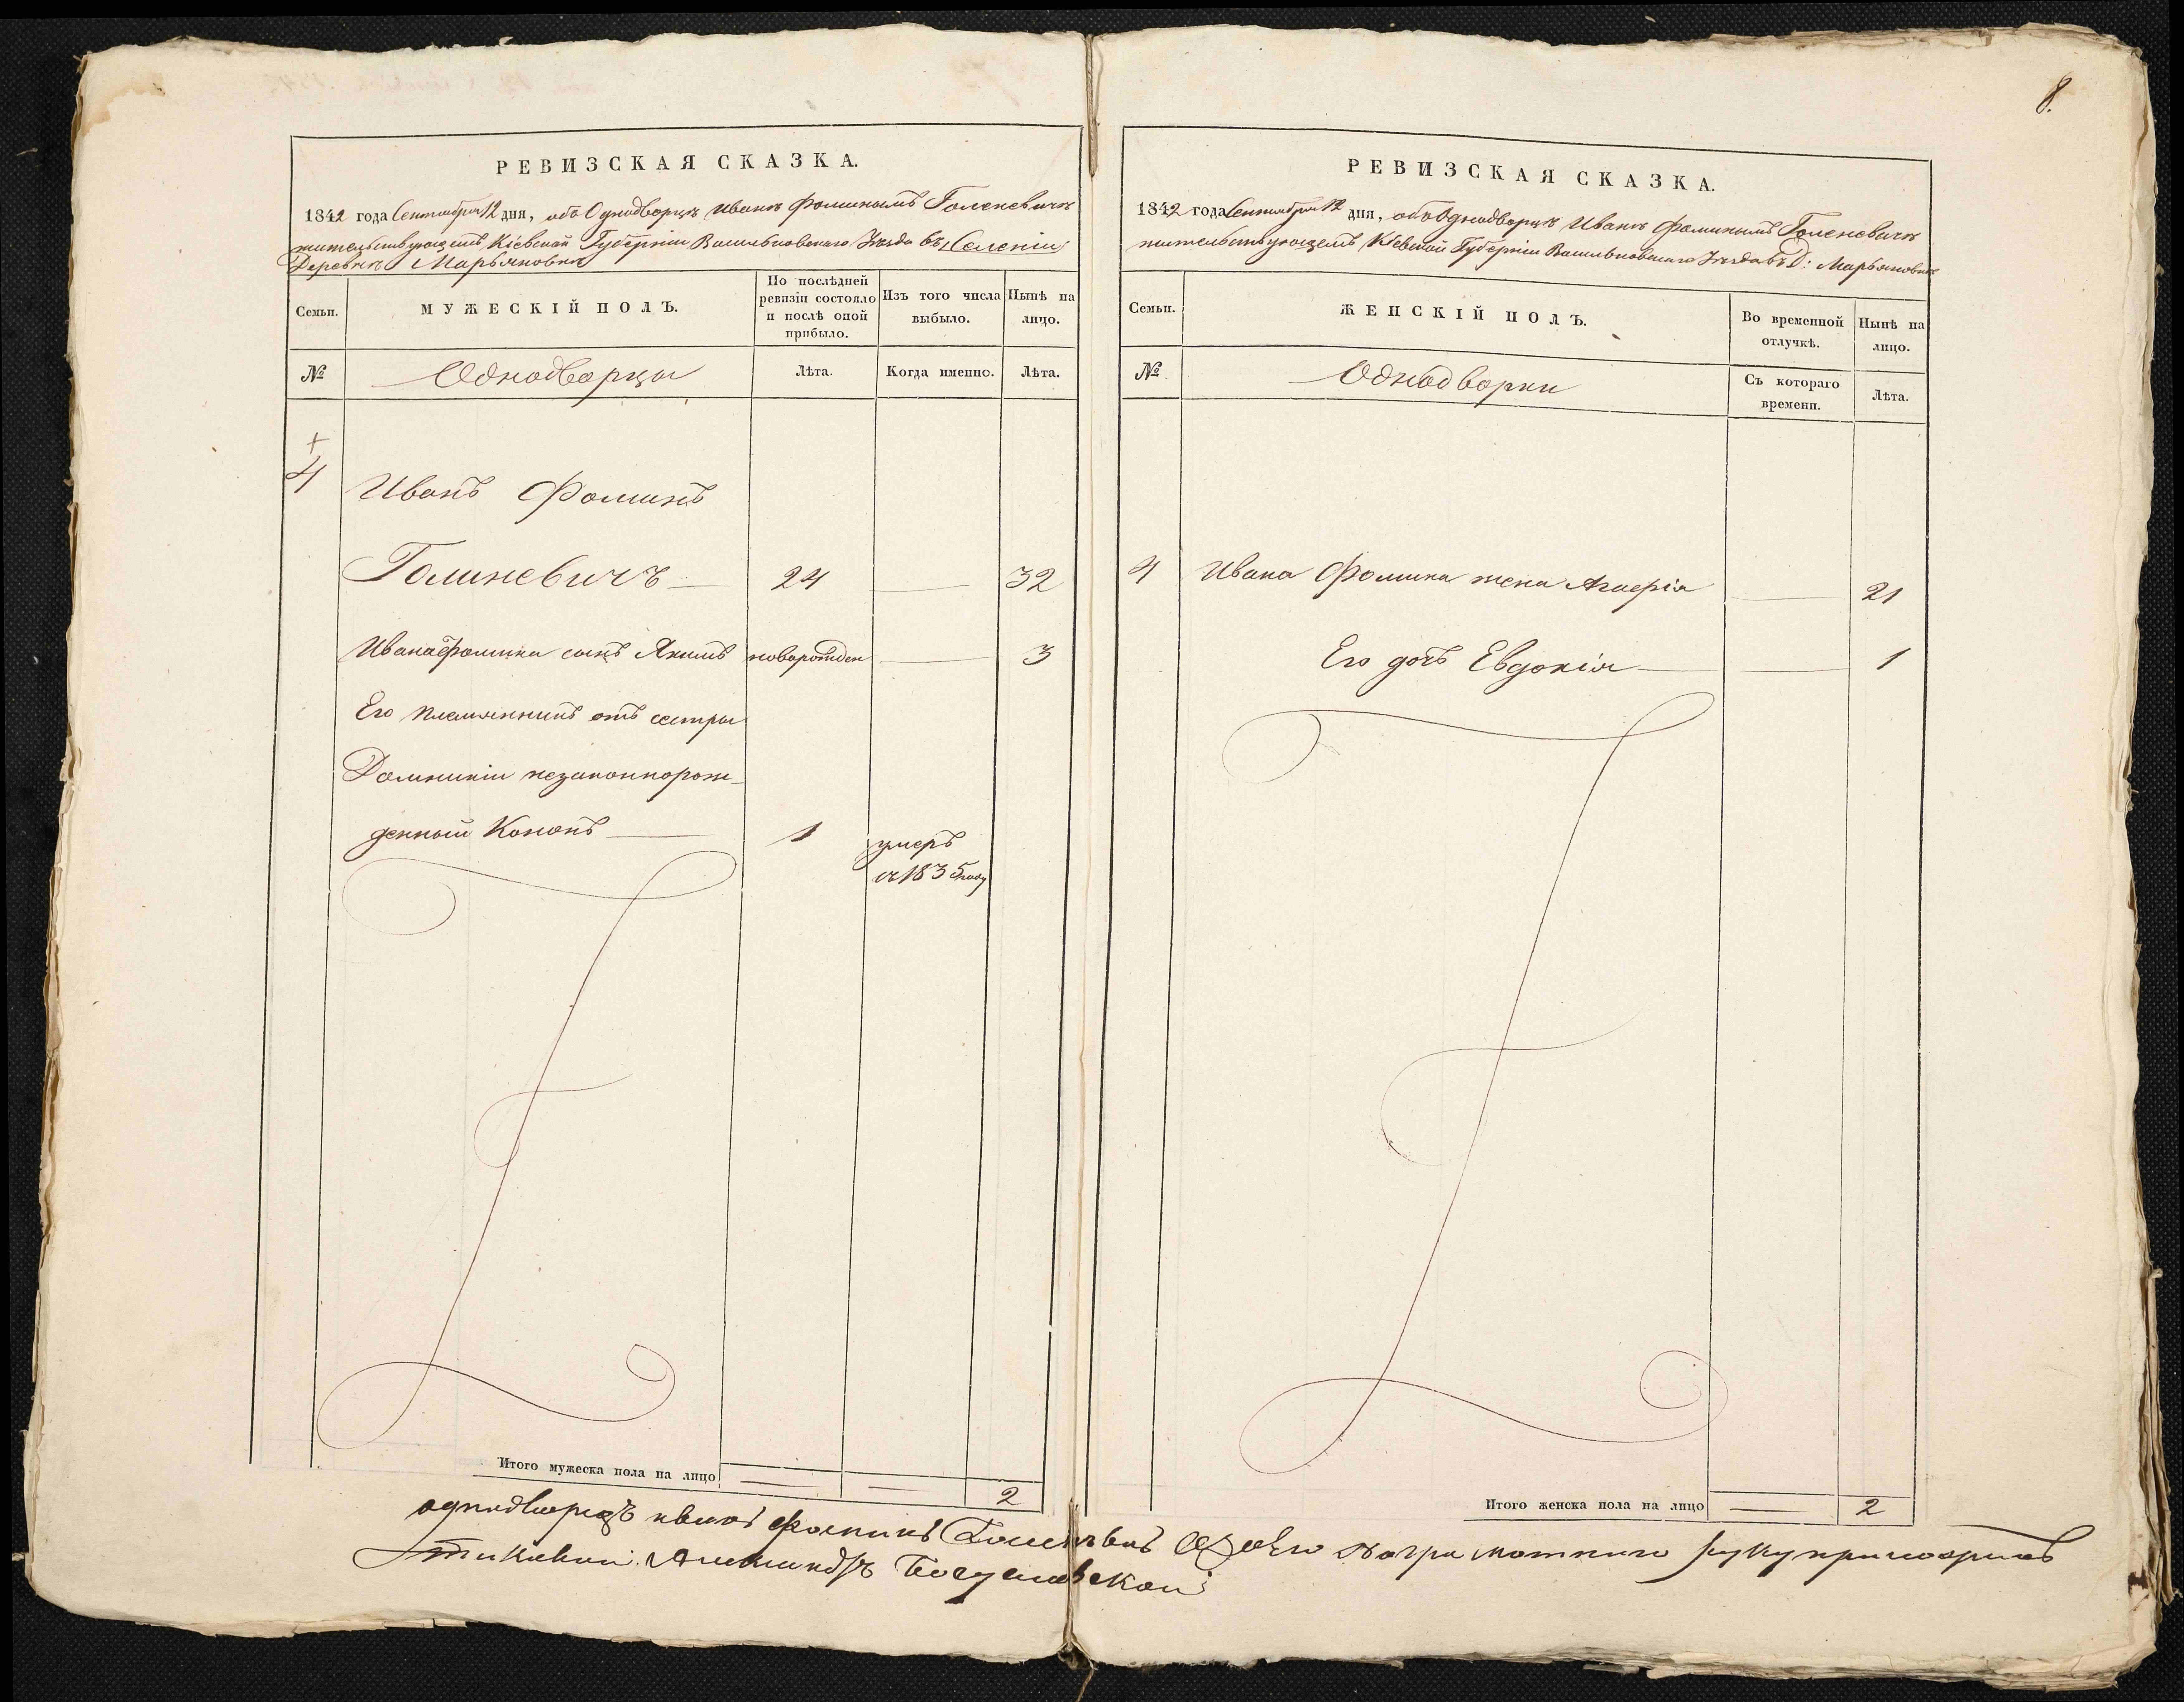 8.
РЕВИЗСКАЯ СКАЗКА.
1842 года Сентября 12 дня, объ Однодворцѣ Иванѣ Фоминымъ Голеневичѣ
жительствующемъ Кіевской Губерніи Васильковскаго Уѣзда въ Селеніи
Деревнѣ Марьяновкѣ
Семьи.
МУЖЕСКІЙ ПОЛЪ.
По послѣдней ревизіи состояло и послѣ оной прибыло.
Изъ того числа выбыло.
Нынѣ на лицо.
№
Однодворцы
Лѣта.
Когда именно.
Лѣта.
4
Иванъ Фоминъ
Голиневичъ 24 — 32
Ивана Фомина сынъ Якимъ новорожден — 3
Его племянникъ отъ сестры
Домникіи незаконнорож-
денный Кононъ 1 умеръ
въ 1835 году
Итого мужеска пола на лицо — — 2
РЕВИЗСКАЯ СКАЗКА.
1842 года Сентября 12 дня, объ Однодворцѣ Иванѣ Фоминымъ Голеневичѣ
жительствующемъ Кіевской Губерніи Васильковскаго Уѣзда въ Д: Марьяновкѣ
Семьи.
ЖЕНСКІЙ ПОЛЪ.
Во временной отлучкѣ.
Нынѣ на лицо.
№
Однодворки
Съ котораго времени.
Лѣта.
4 Ивана Фомина жена Агафія — 21
Его дочь Евдокія — 1
Итого женска пола на лицо — 2
однодворецъ иванъ фоминъ руку приложилъ
Александръ